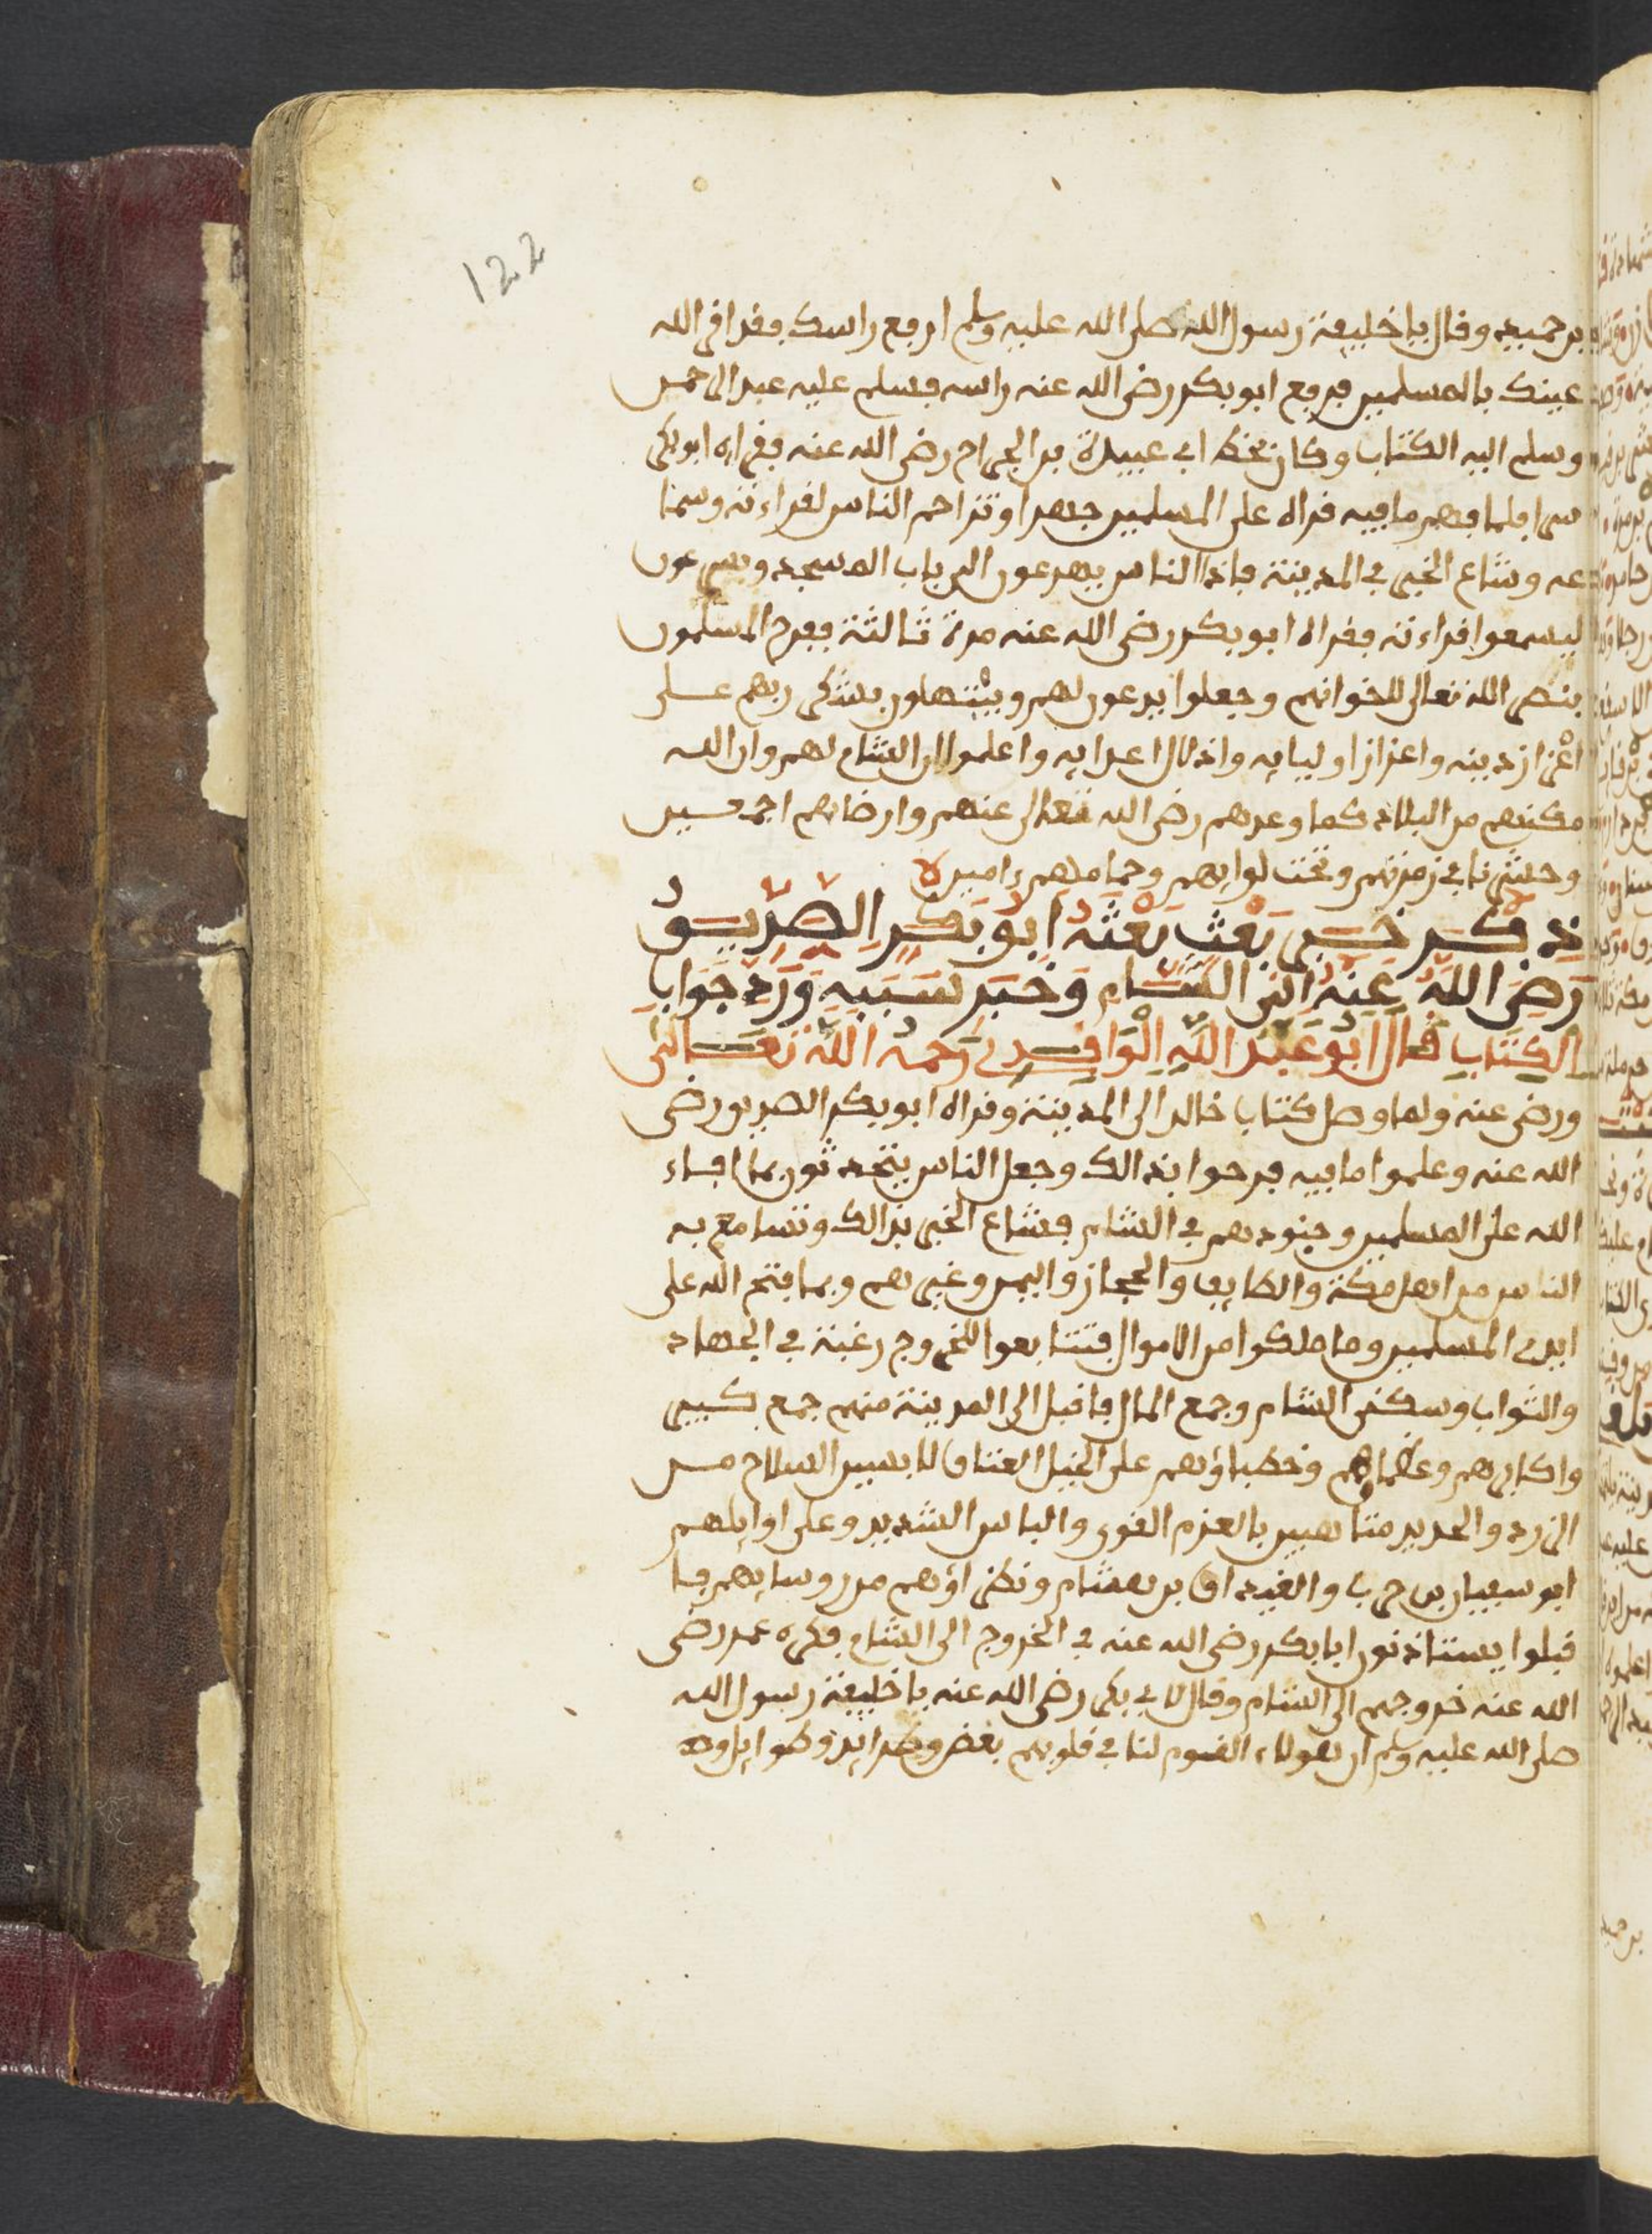 122
بن حميد وقال يا خليفة رسول الله صلى الله عليه وسلم ارفع راسك فقد اقر الله
عينك بالمسلمين فرفع ابو بكر رضى الله عنه راسه فسلم عليه عبد الرحمن
وسلم اليه الكتاب وكان بخط ابي عبيدة بن الجراح رضى الله عنه فقراه ابو بكر
سرا فلما فهم ما فيه قراه على المسلمين جهرا وتزاحم الناس لقراءته وسمنا
عه وشاع الخبر في المدينة فاذا الناس يهرعون الى باب المسجد ويسرعون
ليسمعوا قراءته فقراه ابو بكر رضى الله عنه مرة ثالثة ففرح المسلمون
بنصر الله تعالى لاخوانهم وجعلوا يدعون لهم ويبتهلون بشكر ربهم على
اعزاز دينه واعزاز اوليايه واذلال اعدايه واعلموا ان الشام لهم وان الله
مكنهم من البلاد كما وعدهم رضى الله تعالى عنهم وارضاهم اجمعين
وحشرنا في زمرتهم وتحت لوايهم وحماملهم ءامين
ذكر خبر بعث بعثه ابو بكر الصديق
رضى الله عنه الى الشام وخبر سببه ورد جواب
الكتاب قال ابو عبد الله الواقدي رحمه الله تعالى
ورضى عنه ولما وصل كتاب خالد الى المدينة وقراه ابو بكر الصديق رضى
الله عنه وعلموا ما فيه فرحوا بذالك وجعل الناس يتحدثون بما افاء
الله على المسلمين وجنودهم في الشام فشاع الخبر بذالك وتسامع به
الناس من اهل مكة والطايف والحجاز واليمن وغيرهم وبما فتح الله على
ايدي المسلمين وما ملكوا من الاموال فتتابعوا للخروج رغبة في الجهاد
والثواب وسكنى الشام وجمع المال فاقبل الى المدينة منهم جمع كبير
واكابرهم وعظماؤهم وخطباؤهم على الخيل العتاق لابسين السلاح من
الزرد والحديد متاهبين بالعزم القوى والباس الشديد وعلى اوايلهم
ابو سفيان بن حرب والغيداق بن هشام ونظراؤهم من روسايهم فا
قبلوا يستاذنون ابا بكر رضى الله عنه في الخروج الى الشام فكره عمر رضى
الله عنه خروجهم الى الشام وقال لابي بكر رضى الله عنه يا خليفة رسول الله
صلى الله عليه وسلم ان هولاء القوم لنا في قلوبهم بغض وحقد